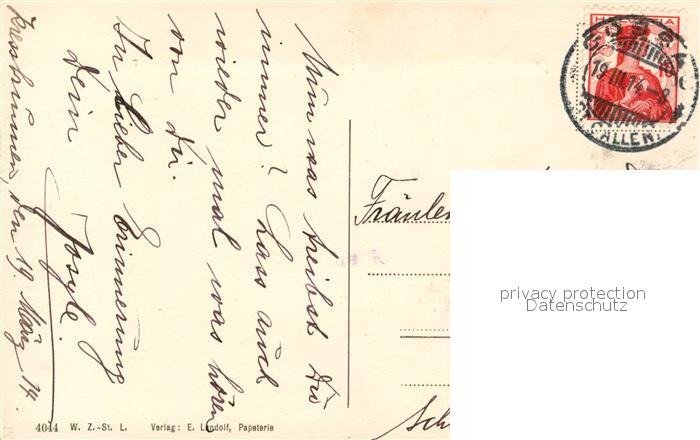 Nun was treibst Du
immer? Lass auch
wieder mal was hören
von dir.
In lieber Erinnerung
Dein
den 19. März 14.
HELVETIA
GOSSAU
19.III.14.-8
(ST.GALLEN)
Fräulein
privacy protection
Datenschutz
Sch
4044 W. Z.-St. L. Verlag: E. Landolf, Papeterie